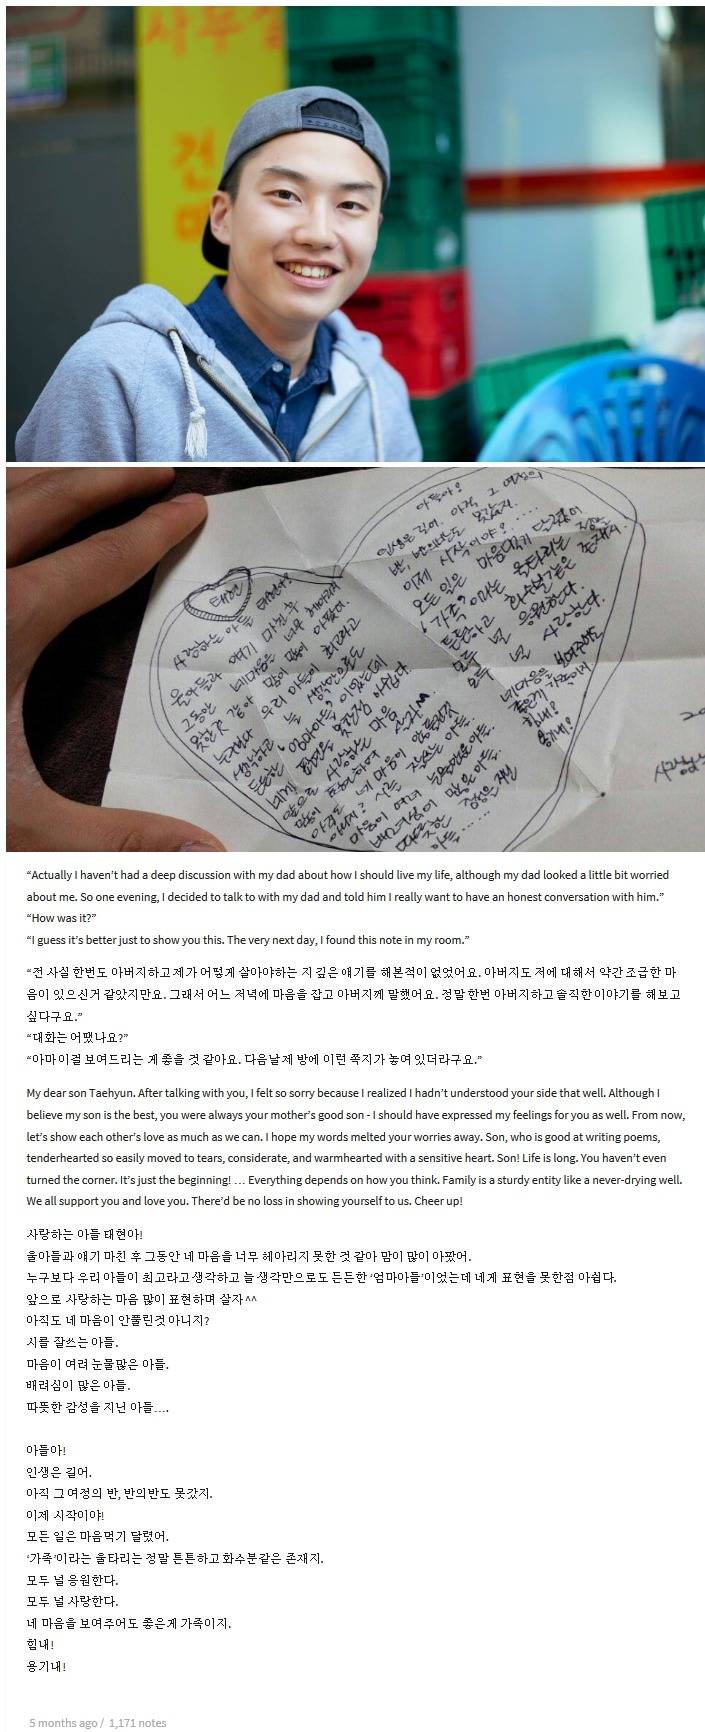 사무실
건
태현
사랑하는 아들 태현아!
울아들과 얘기 마친 후
그동안 네마음을 너무 헤아리지
못한것 같아 맘이 많이 아팠어.
누구보다 우리 아들이 최고라고
생각하고 늘 생각만으로도
든든한 '엄마아들'이었는데
네게 표현을 못한점 아쉽다.
앞으로 사랑하는 마음
많이 표현하며 살자^^
아직도 네 마음이 안풀린것
아니지? 시를 잘쓰는 아들.
마음이 여려 눈물많은 아들.
배려심이 많은 아들.
따뜻한 감성을 지닌
아들......
아들아!
인생은 길어. 아직 그 여정의
반, 반의반도 못갔지.
이제 시작이야! ......
모든 일은 마음먹기 달렸어
'가족'이라는 울타리는 정말
튼튼하고 화수분같은 존재지.
모두 널 응원한다.
모두 널 사랑한다.
네마음을 보여주어도
좋은게 가족이지.
힘내!
용기내!
“Actually I haven’t had a deep discussion with my dad about how I should live my life, although my dad looked a little bit worried
about me. So one evening, I decided to talk to with my dad and told him I really want to have an honest conversation with him.”
“How was it?”
“I guess it’s better just to show you this. The very next day, I found this note in my room.”
“전 사실 한번도 아버지하고 제가 어떻게 살아야하는 지 깊은 얘기를 해본적이 없었어요. 아버지도 저에 대해서 약간 조급한 마
음이 있으신거 같았지만요. 그래서 어느 저녁에 마음을 잡고 아버지께 말했어요. 정말 한번 아버지하고 솔직한 이야기를 해보고
싶다구요.”
“대화는 어땠나요?”
“아마 이걸 보여드리는 게 좋을 것 같아요. 다음날 제 방에 이런 쪽지가 놓여 있더라구요.”
My dear son Taehyun. After talking with you, I felt so sorry because I realized I hadn’t understood your side that well. Although I
believe my son is the best, you were always your mother’s good son - I should have expressed my feelings for you as well. From now,
let’s show each other’s love as much as we can. I hope my words melted your worries away. Son, who is good at writing poems,
tenderhearted so easily moved to tears, considerate, and warmhearted with a sensitive heart. Son! Life is long. You haven’t even
turned the corner. It’s just the beginning! … Everything depends on how you think. Family is a sturdy entity like a never-drying well.
We all support you and love you. There’d be no loss in showing yourself to us. Cheer up!
사랑하는 아들 태현아!
울아들과 얘기 마친 후 그동안 네 마음을 너무 헤아리지 못한 것 같아 맘이 많이 아팠어.
누구보다 우리 아들이 최고라고 생각하고 늘 생각만으로도 든든한 ‘엄마아들’이었는데 네게 표현을 못한점 아쉽다.
앞으로 사랑하는 마음 많이 표현하며 살자^^
아직도 네 마음이 안풀린것 아니지?
시를 잘쓰는 아들.
마음이 여려 눈물많은 아들.
배려심이 많은 아들.
따뜻한 감성을 지닌 아들….
아들아!
인생은 길어.
아직 그 여정의 반, 반의반도 못갔지.
이제 시작이야!
모든 일은 마음먹기 달렸어.
‘가족’이라는 울타리는 정말 튼튼하고 화수분같은 존재지.
모두 널 응원한다.
모두 널 사랑한다.
네 마음을 보여주어도 좋은게 가족이지.
힘내!
용기내!
5 months ago / 1,171 notes